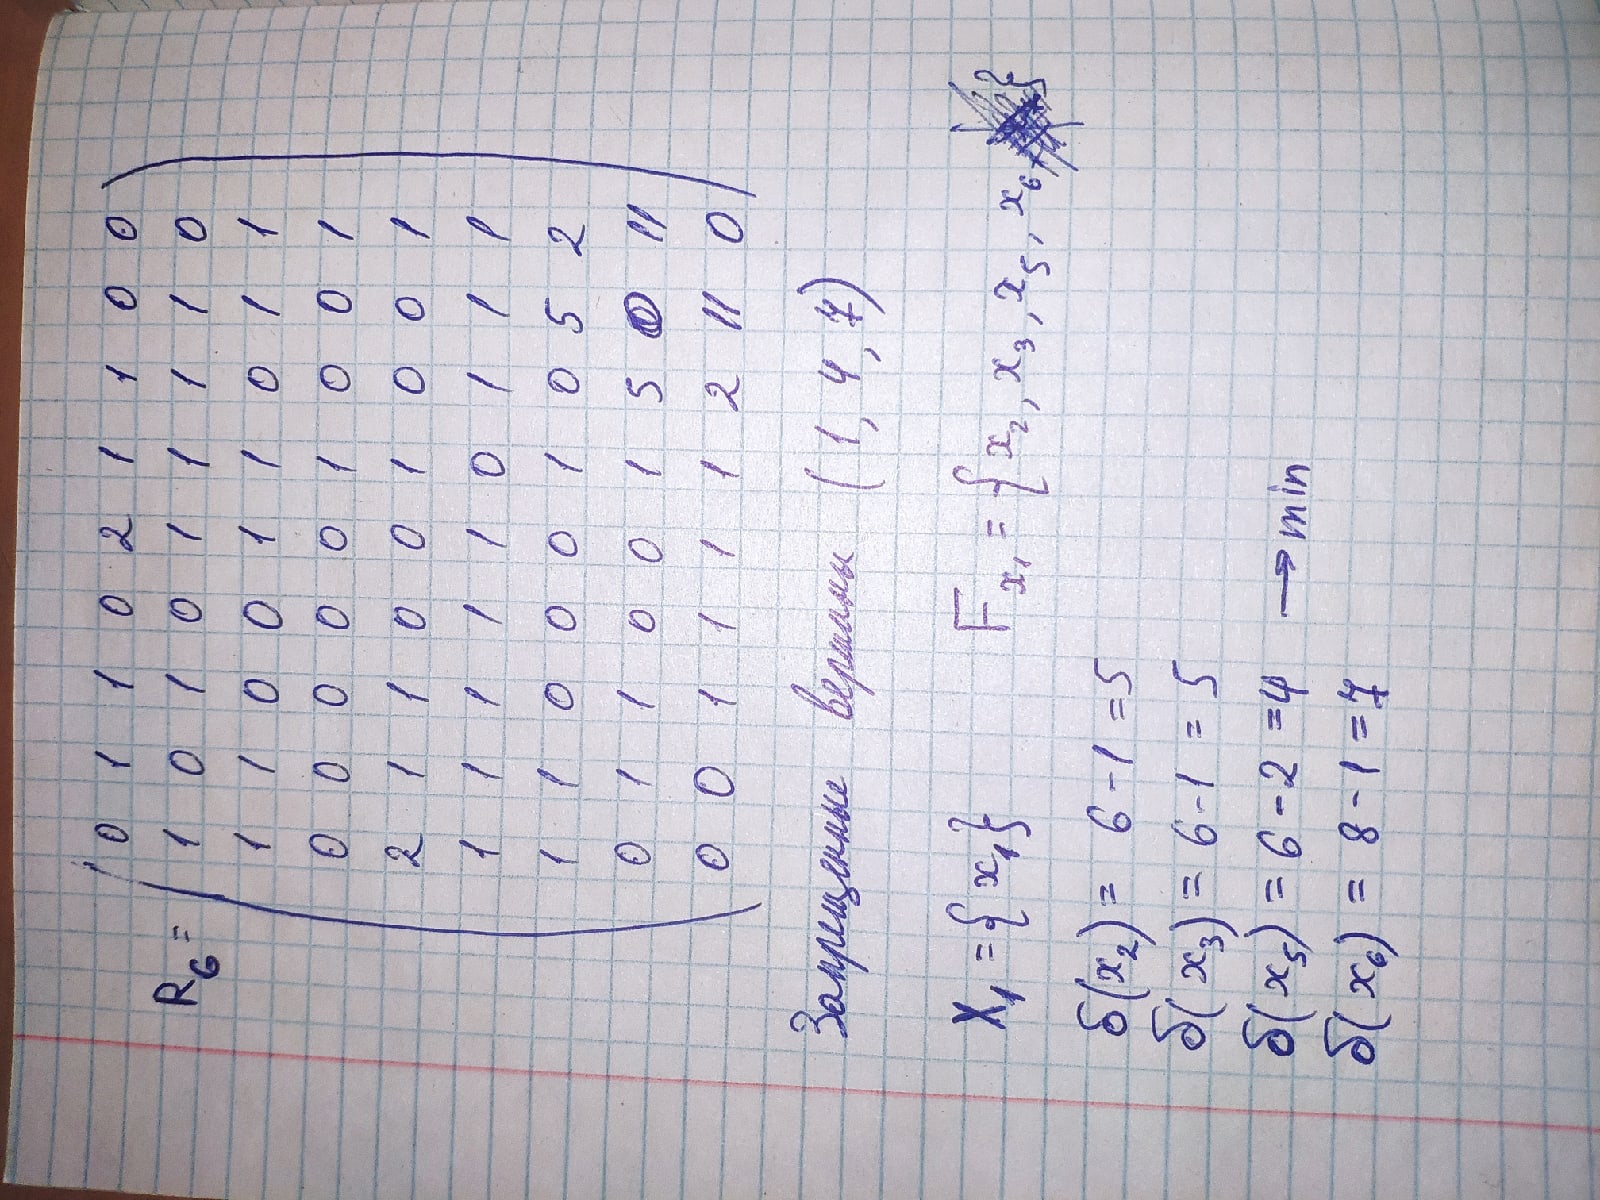 0 1 1 0 2 1 1 0 0
R₆ = 1 0 1 0 1 1 1 1 0
1 1 0 0 1 1 0 1 1
0 0 0 0 0 1 0 0 1
2 1 1 0 0 1 0 0 1
1 1 1 1 1 0 1 1 1
1 1 0 0 0 1 0 5 2
0 1 1 0 0 1 5 0 11
0 0 1 1 1 1 2 11 0
Запрещенные вершины (1, 4, 7)
X₁ = {x₁} Fx₁ = {x₂, x₃, x₅, x₆}
δ(x₂) = 6-1 = 5
δ(x₃) = 6-1 = 5
δ(x₅) = 6-2 = 4 → min
δ(x₆) = 8-1 = 7